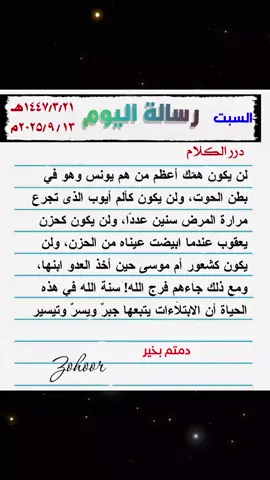 السبت
رسالة اليوم
١٤٤٧/٣/٢١هـ
٢٠٢٥/٩/١٣م
درر الكلام
لن يكون همّك أعظم من هم يونس وهو في
بطن الحوت، ولن يكون كألم أيوب الذى تجرع
مرارة المرض سنين عددًا، ولن يكون كحزن
يعقوب عندما ابيضت عيناه من الحزن، ولن
يكون كشعور أم موسى حين أخذ العدو ابنها،
ومع ذلك جاءهم فرج الله! سنة الله في هذه
الحياة أن الابتلاءات يتبعها جبرٌ ويسرٌ وتيسير
دمتم بخير
Zohoor